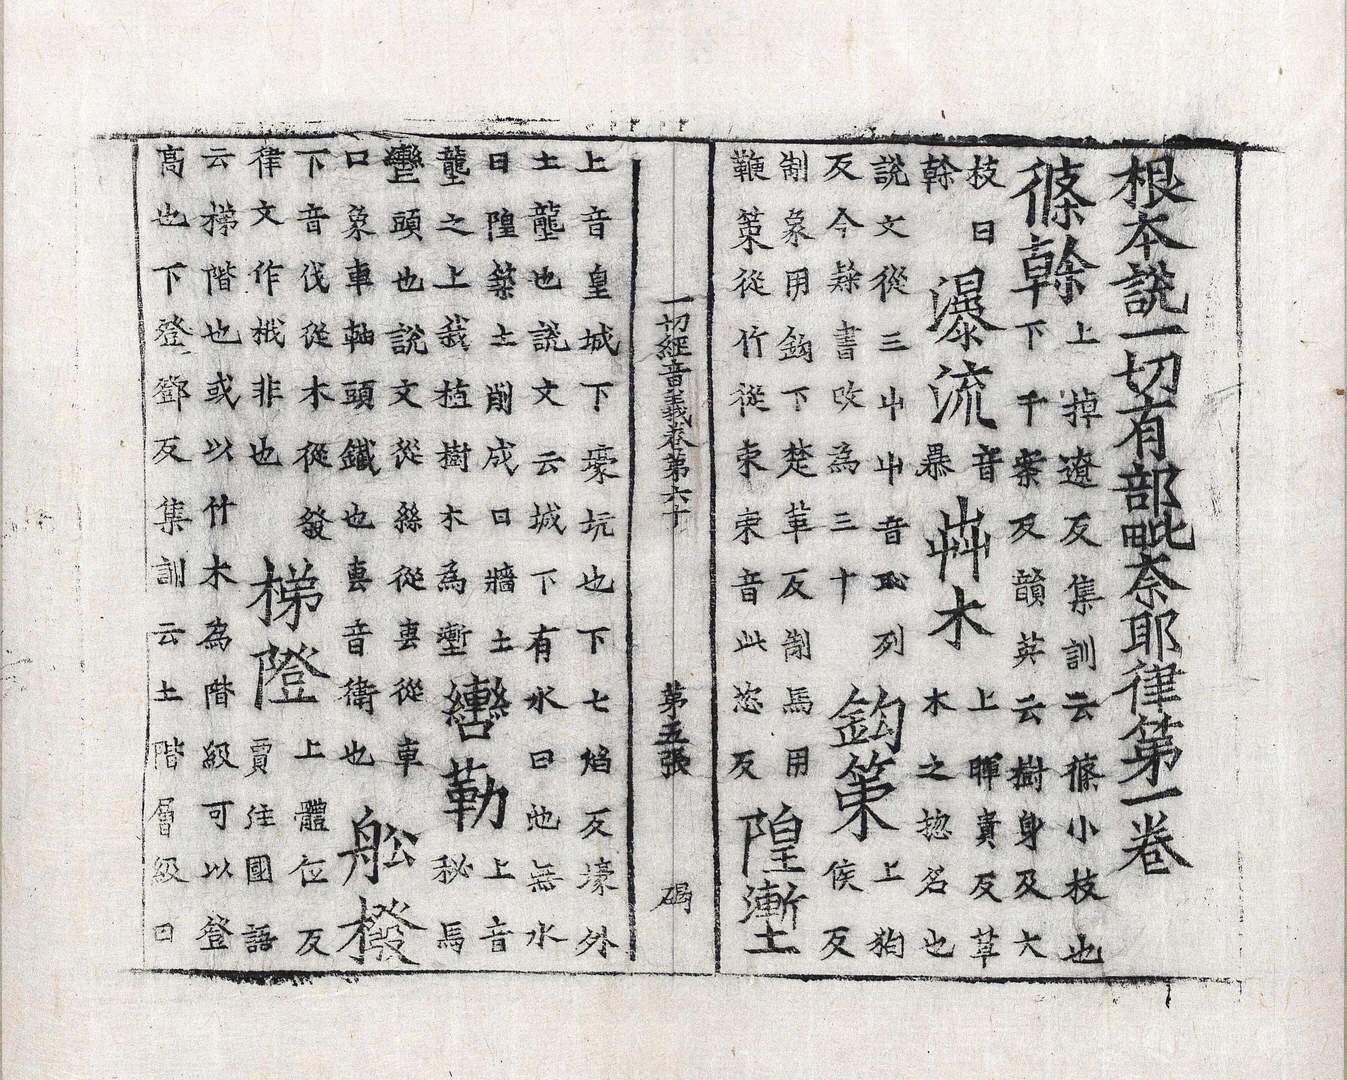 根本說一切有部毗奈耶律第一卷
篠幹上掉遼反集訓云篠小枝也下干案反韻英云樹身及大
枝曰幹瀑流音暴茻木上暉貴反草木之揔名也
說文從三屮屮音耻列反今隷書改為三十鉤策上狗侯反
制象用鉤下楚革反制馬用鞭策從竹從朿朿音此恣反隍塹
一切經音義卷第六十 第五張 碣
上音皇城下壕坑也下七焰反壕外土壟也說文云城下有水曰池無水
曰隍築土削成曰牆土壟之上栽植樹木為塹轡勒上音秘馬
轡頭也說文從絲從軎從車口象車軸頭鐵也軎音衛也舩橃
下音伐從木從發律文作栰非也梯隥上體位反賈逵國語
云梯階也或以竹木為階級可以登高也下登鄧反集訓云土階層級曰